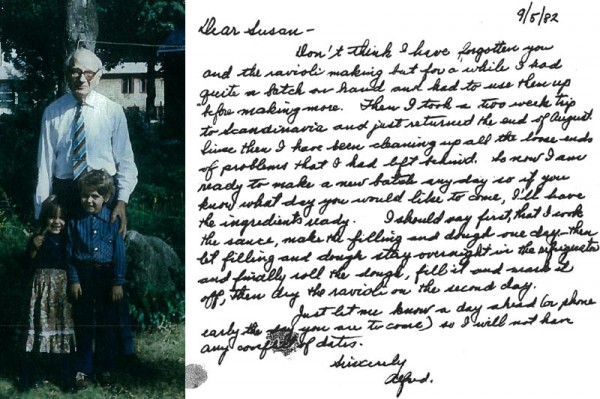 9/5/82
Dear Susan -
Don't think I have forgotten you
and the ravioli making but for a while I had
quite a batch on hand and had to use them up
before making more. Then I took a two week trip
to Scandinavia and just returned the end of August.
Since then I have been cleaning up all the loose ends
of problems that I had left behind. So now I am
ready to make a new batch any day so if you
know what day you would like to come, I'll have
the ingredients ready. I should say first, that I cook
the sauce, make the filling and dough one day - then
let filling and dough stay overnight in the refrigerator
and finally roll the dough, fill it and mark it
off, then dry the ravioli on the second day.
Just let me know a day ahead (or phone
early the day you are to come) so I will not have
any of dates.
Sincerely
Alfred.